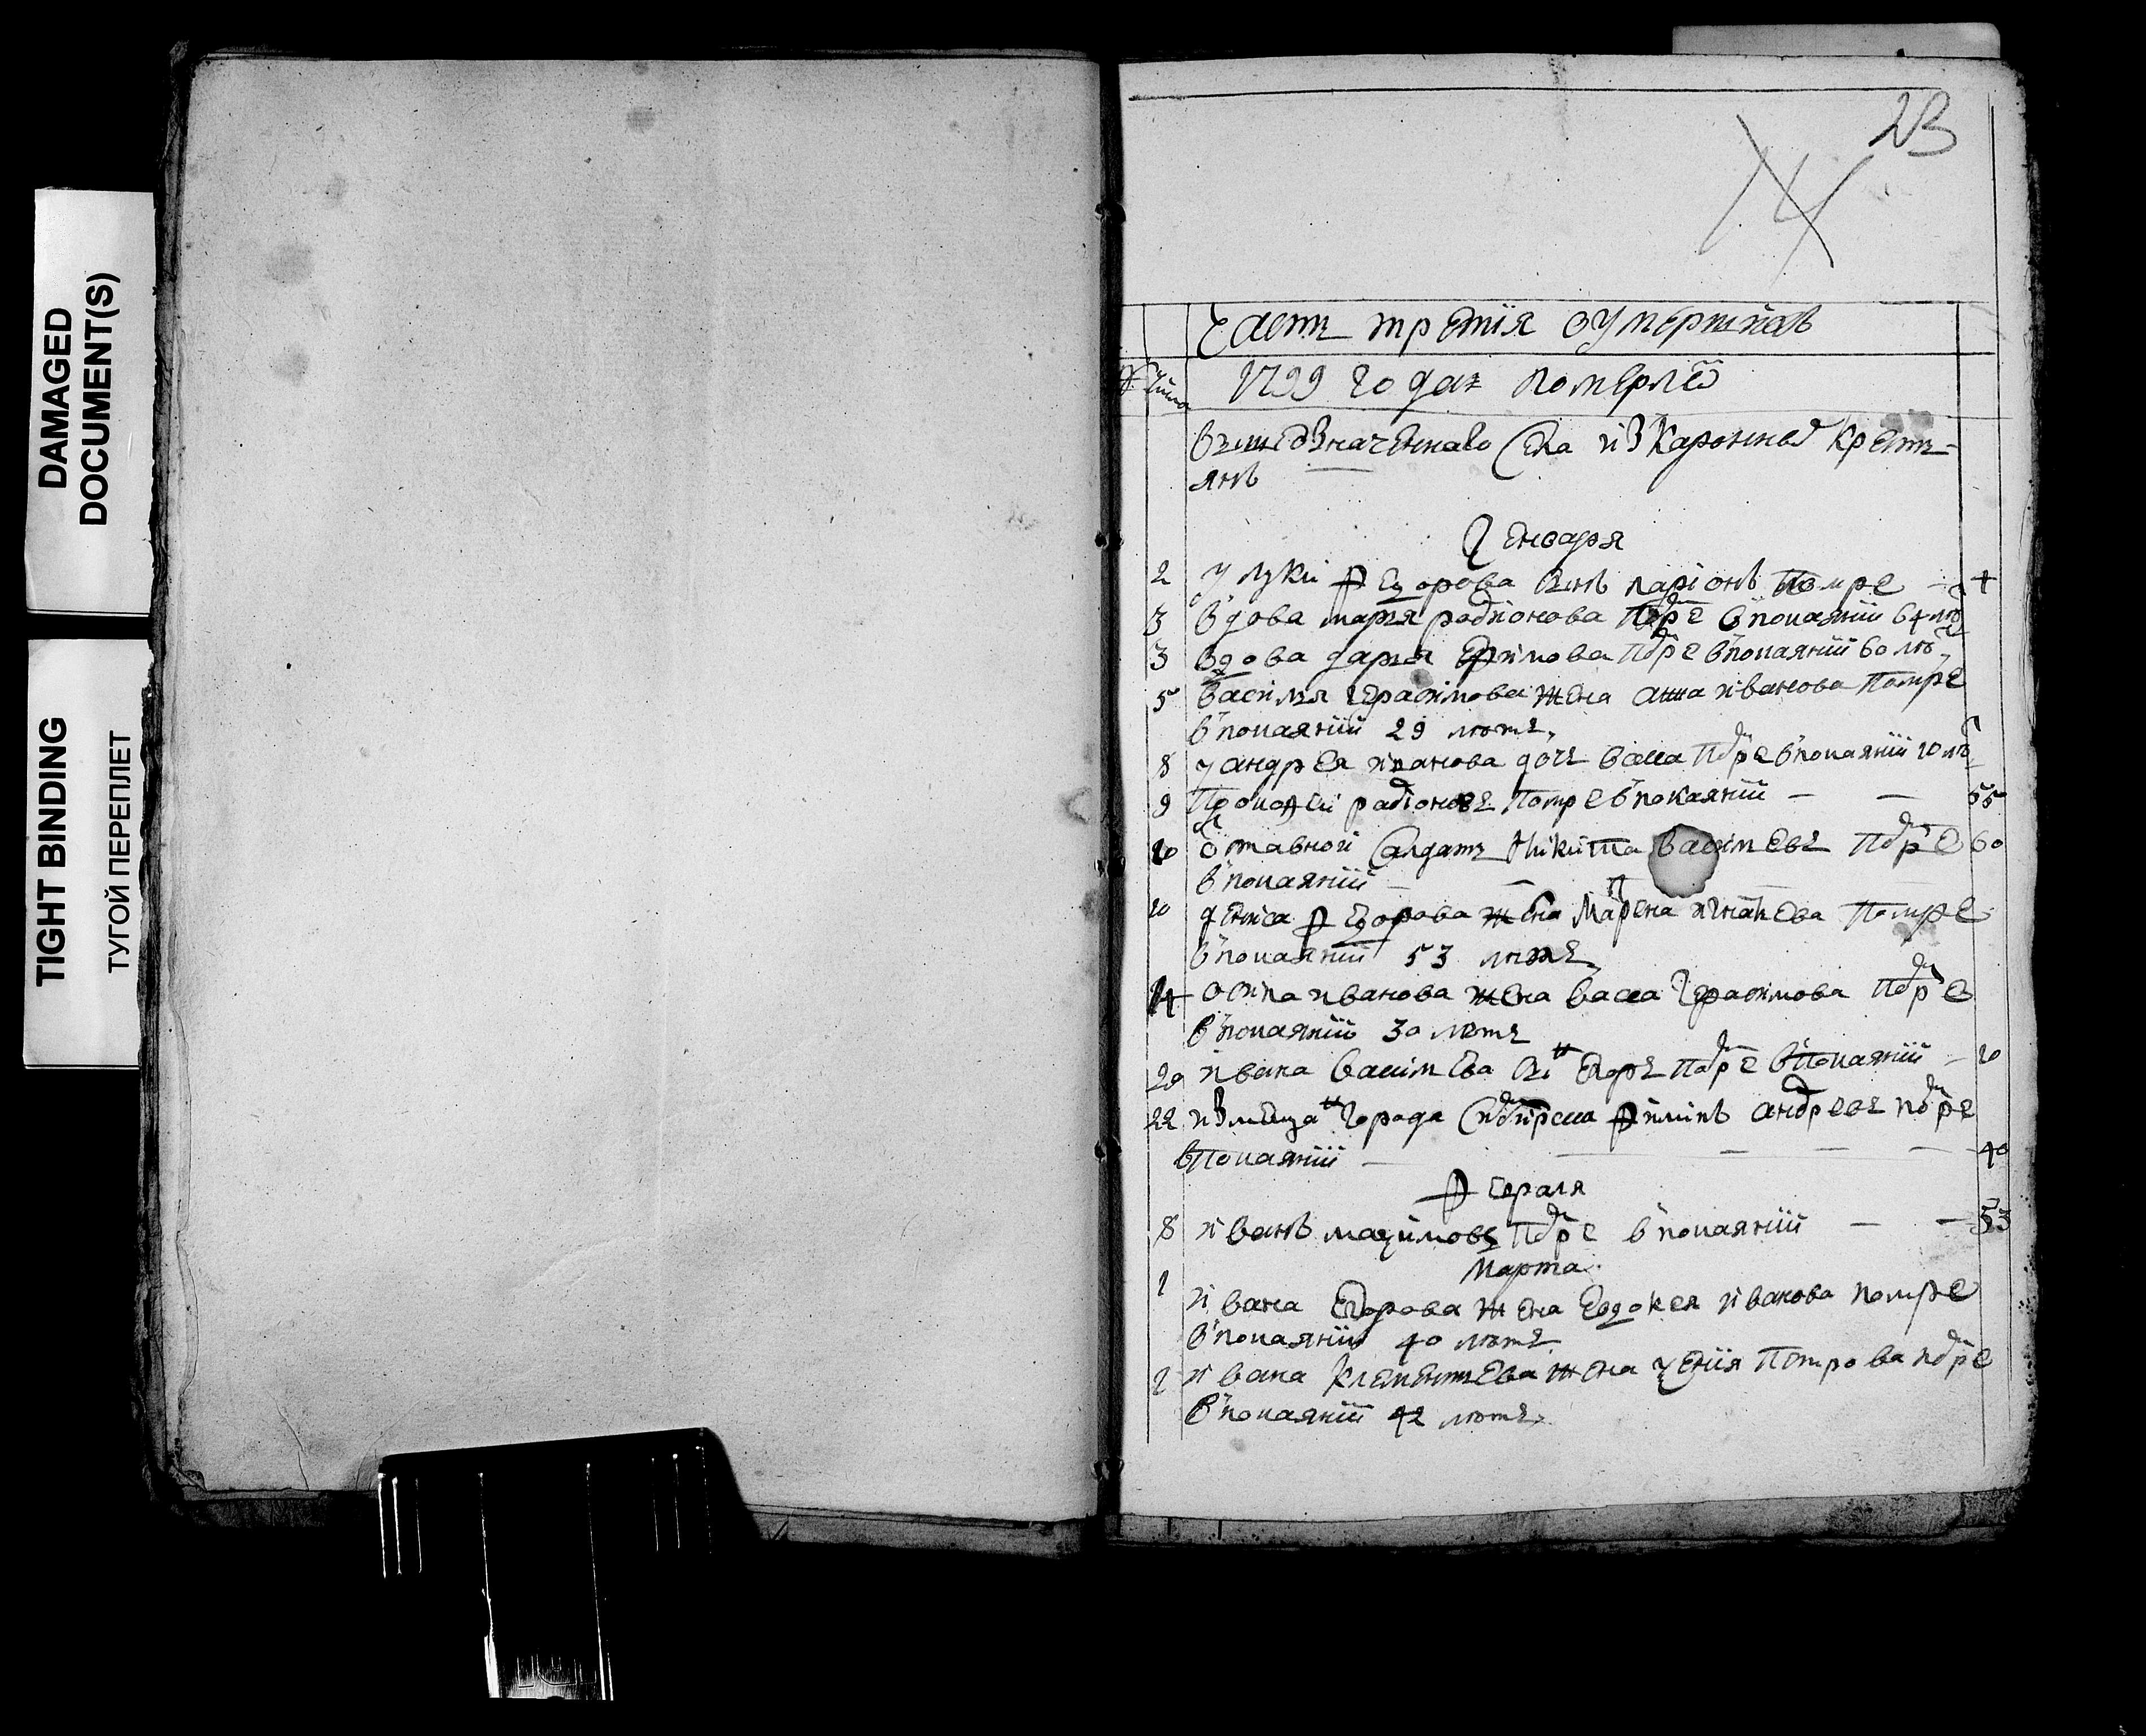 DAMAGED
DOCUMENT(S)
TIGHT BINDING
ТУГОЙ ПЕРЕПЛЕТ
23
14
Часть третія оумершихъ
Число 1799 года померлѣ
села изъ Крестъ-
янъ
Генваря
2 У луки Ѳедорова сынъ ларіонъ помре 4
3 вдова марья родионова помре в покаянии 64 лѣ
3 вдова дарья Ефимова помре в покаянии 60 лѣ
5 василья герасимова жена анна иванова помре
в покаянии 29 летъ
8 у андрея иванова дочь васса помре в покаянии 10 лѣ
9 радіоновъ помре в покаянии — — 55
10 ѿставной салдатъ Никита васильевъ помре 60
в покаянии — —
10 дениса Ѳедорова жена Марѳена игнатьева помре
в покаянии 53 летъ
14 осипа иванова жена васса герасимова помре
в покаянии 30 летъ
20 ивана васильева сынъ Егоръ помре в покаянии — 20
22 города Синбирска Филипъ андреевъ помре
в покаянии — — — — — 40
Февраля
8 иванъ мазимовъ помре в покаянии — — 53
Марта
1 ивана Егорова жена Евдокея иванова помре
в покаянии 40 летъ
2 ивана клементьева жена Петрова помре
в покаянии 42 летъ